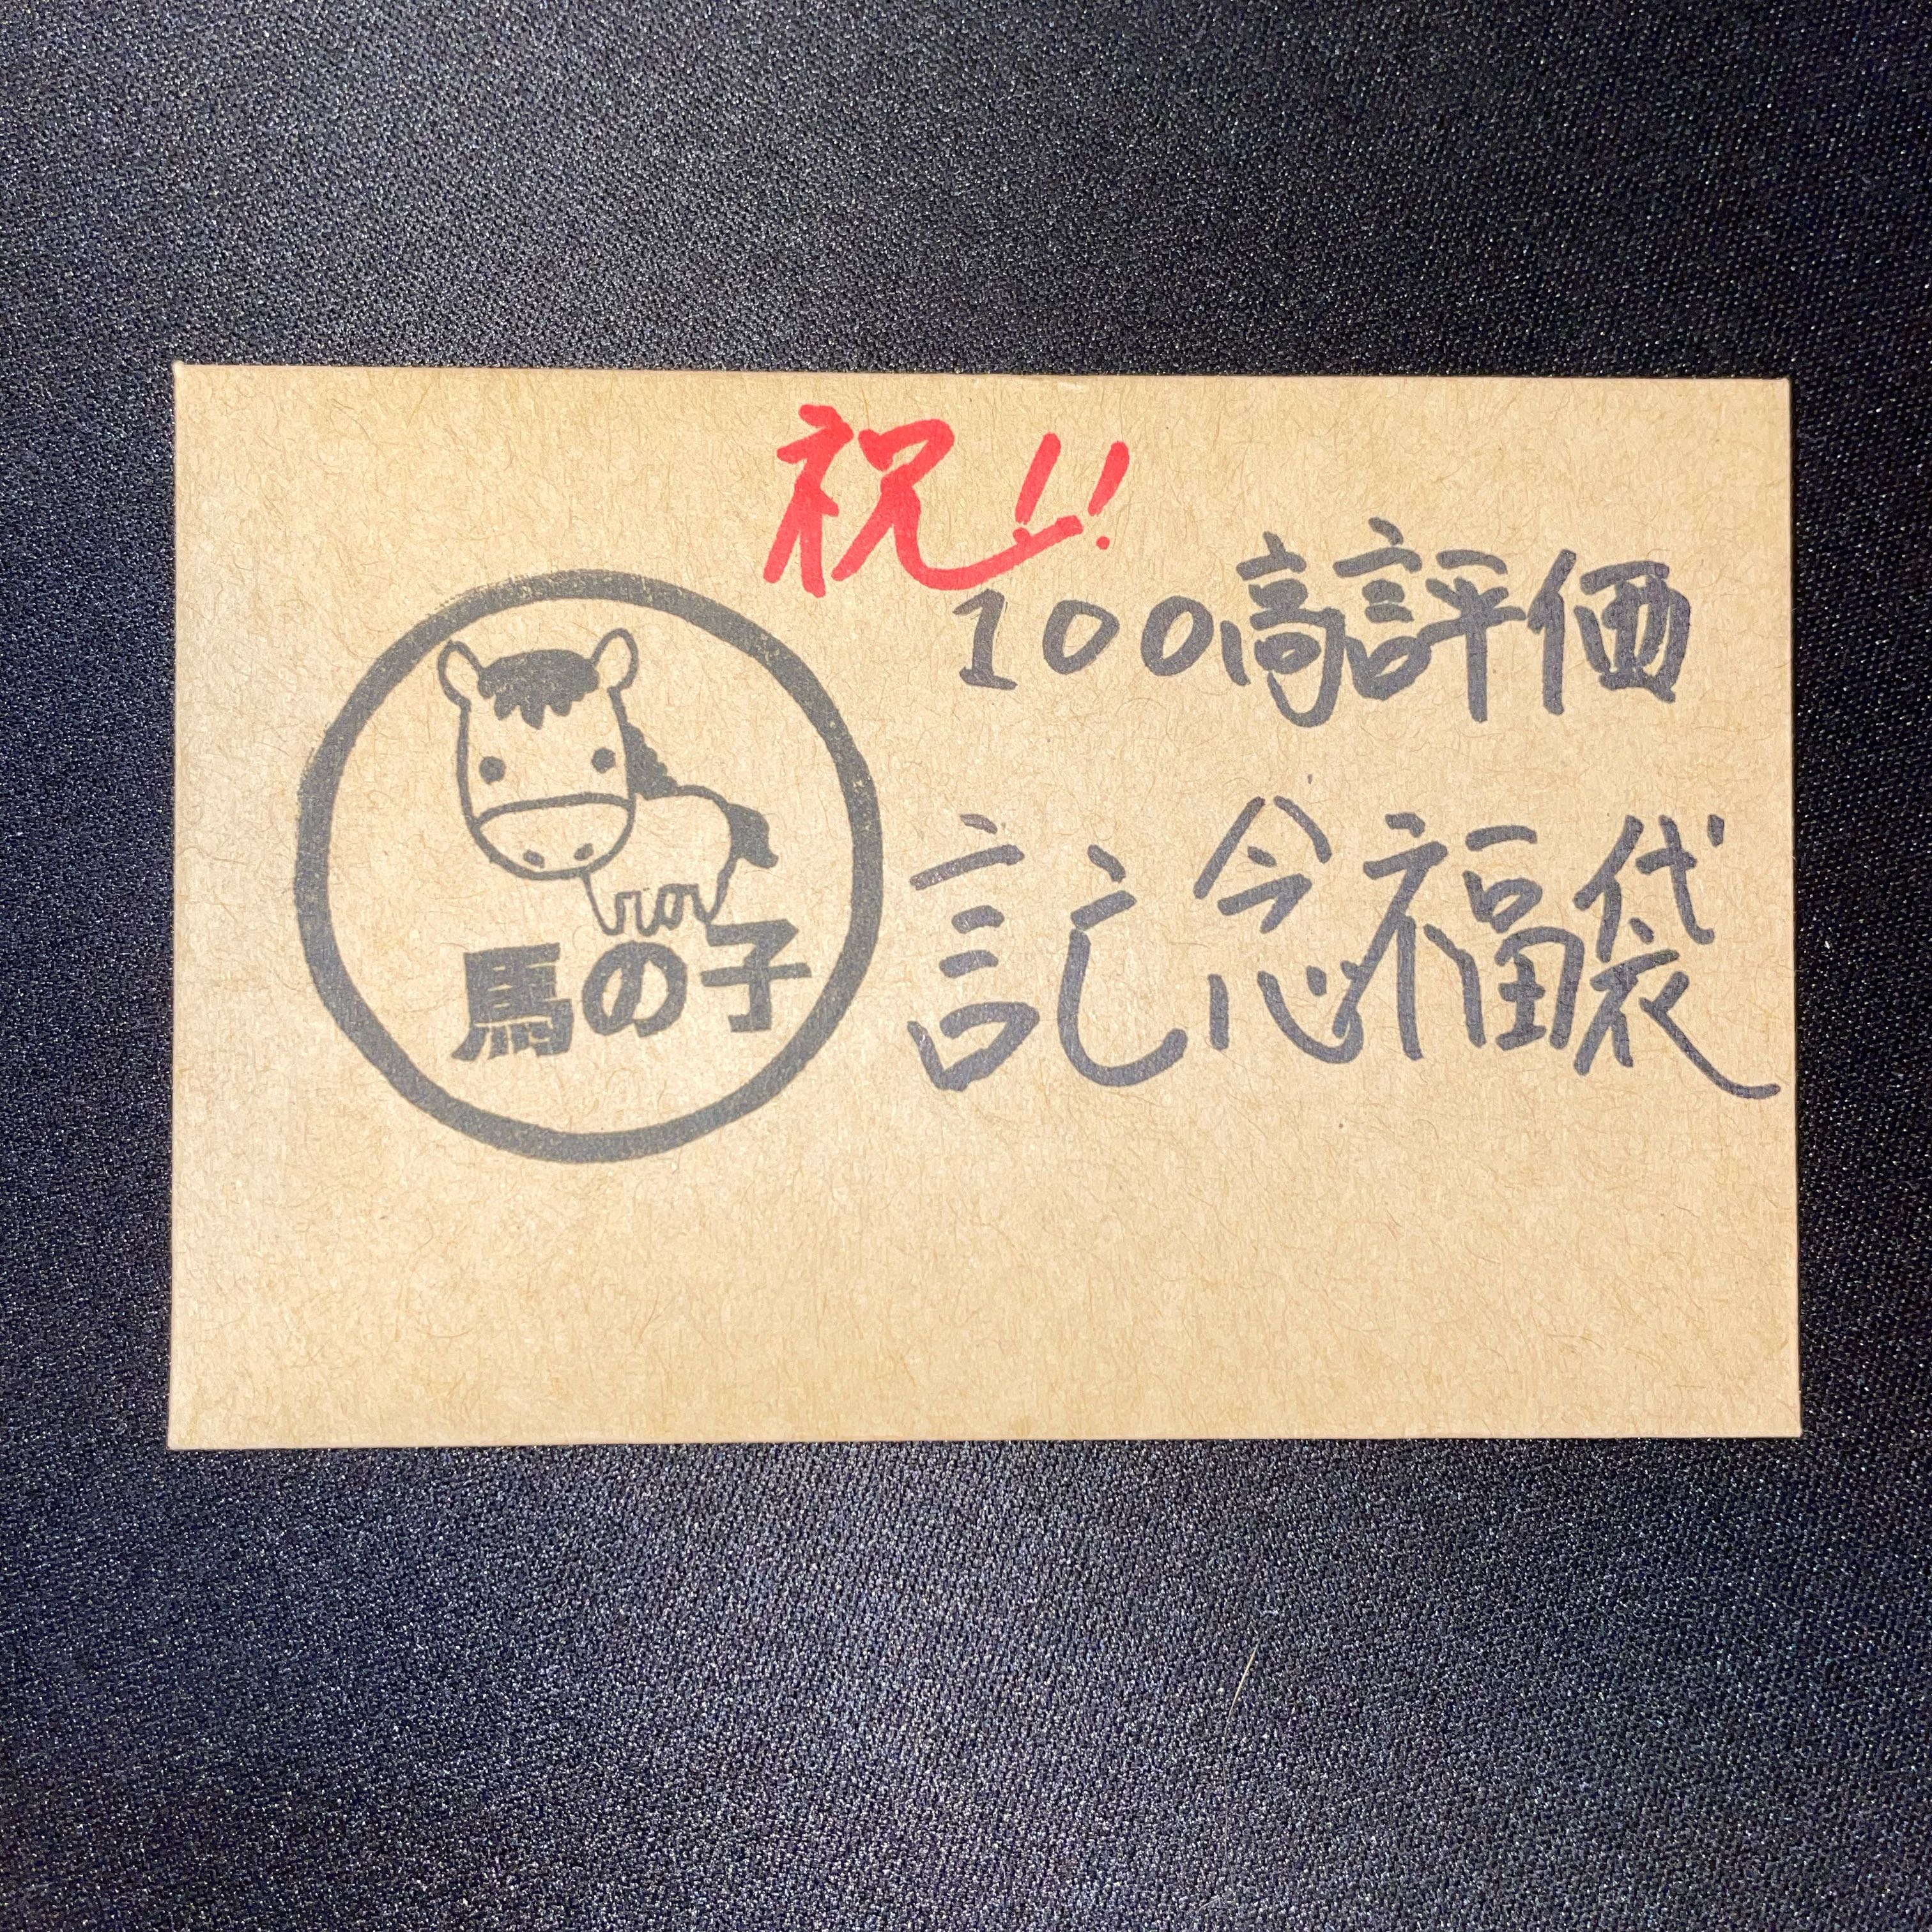 祝!!
100高評価
記念福袋
馬の子